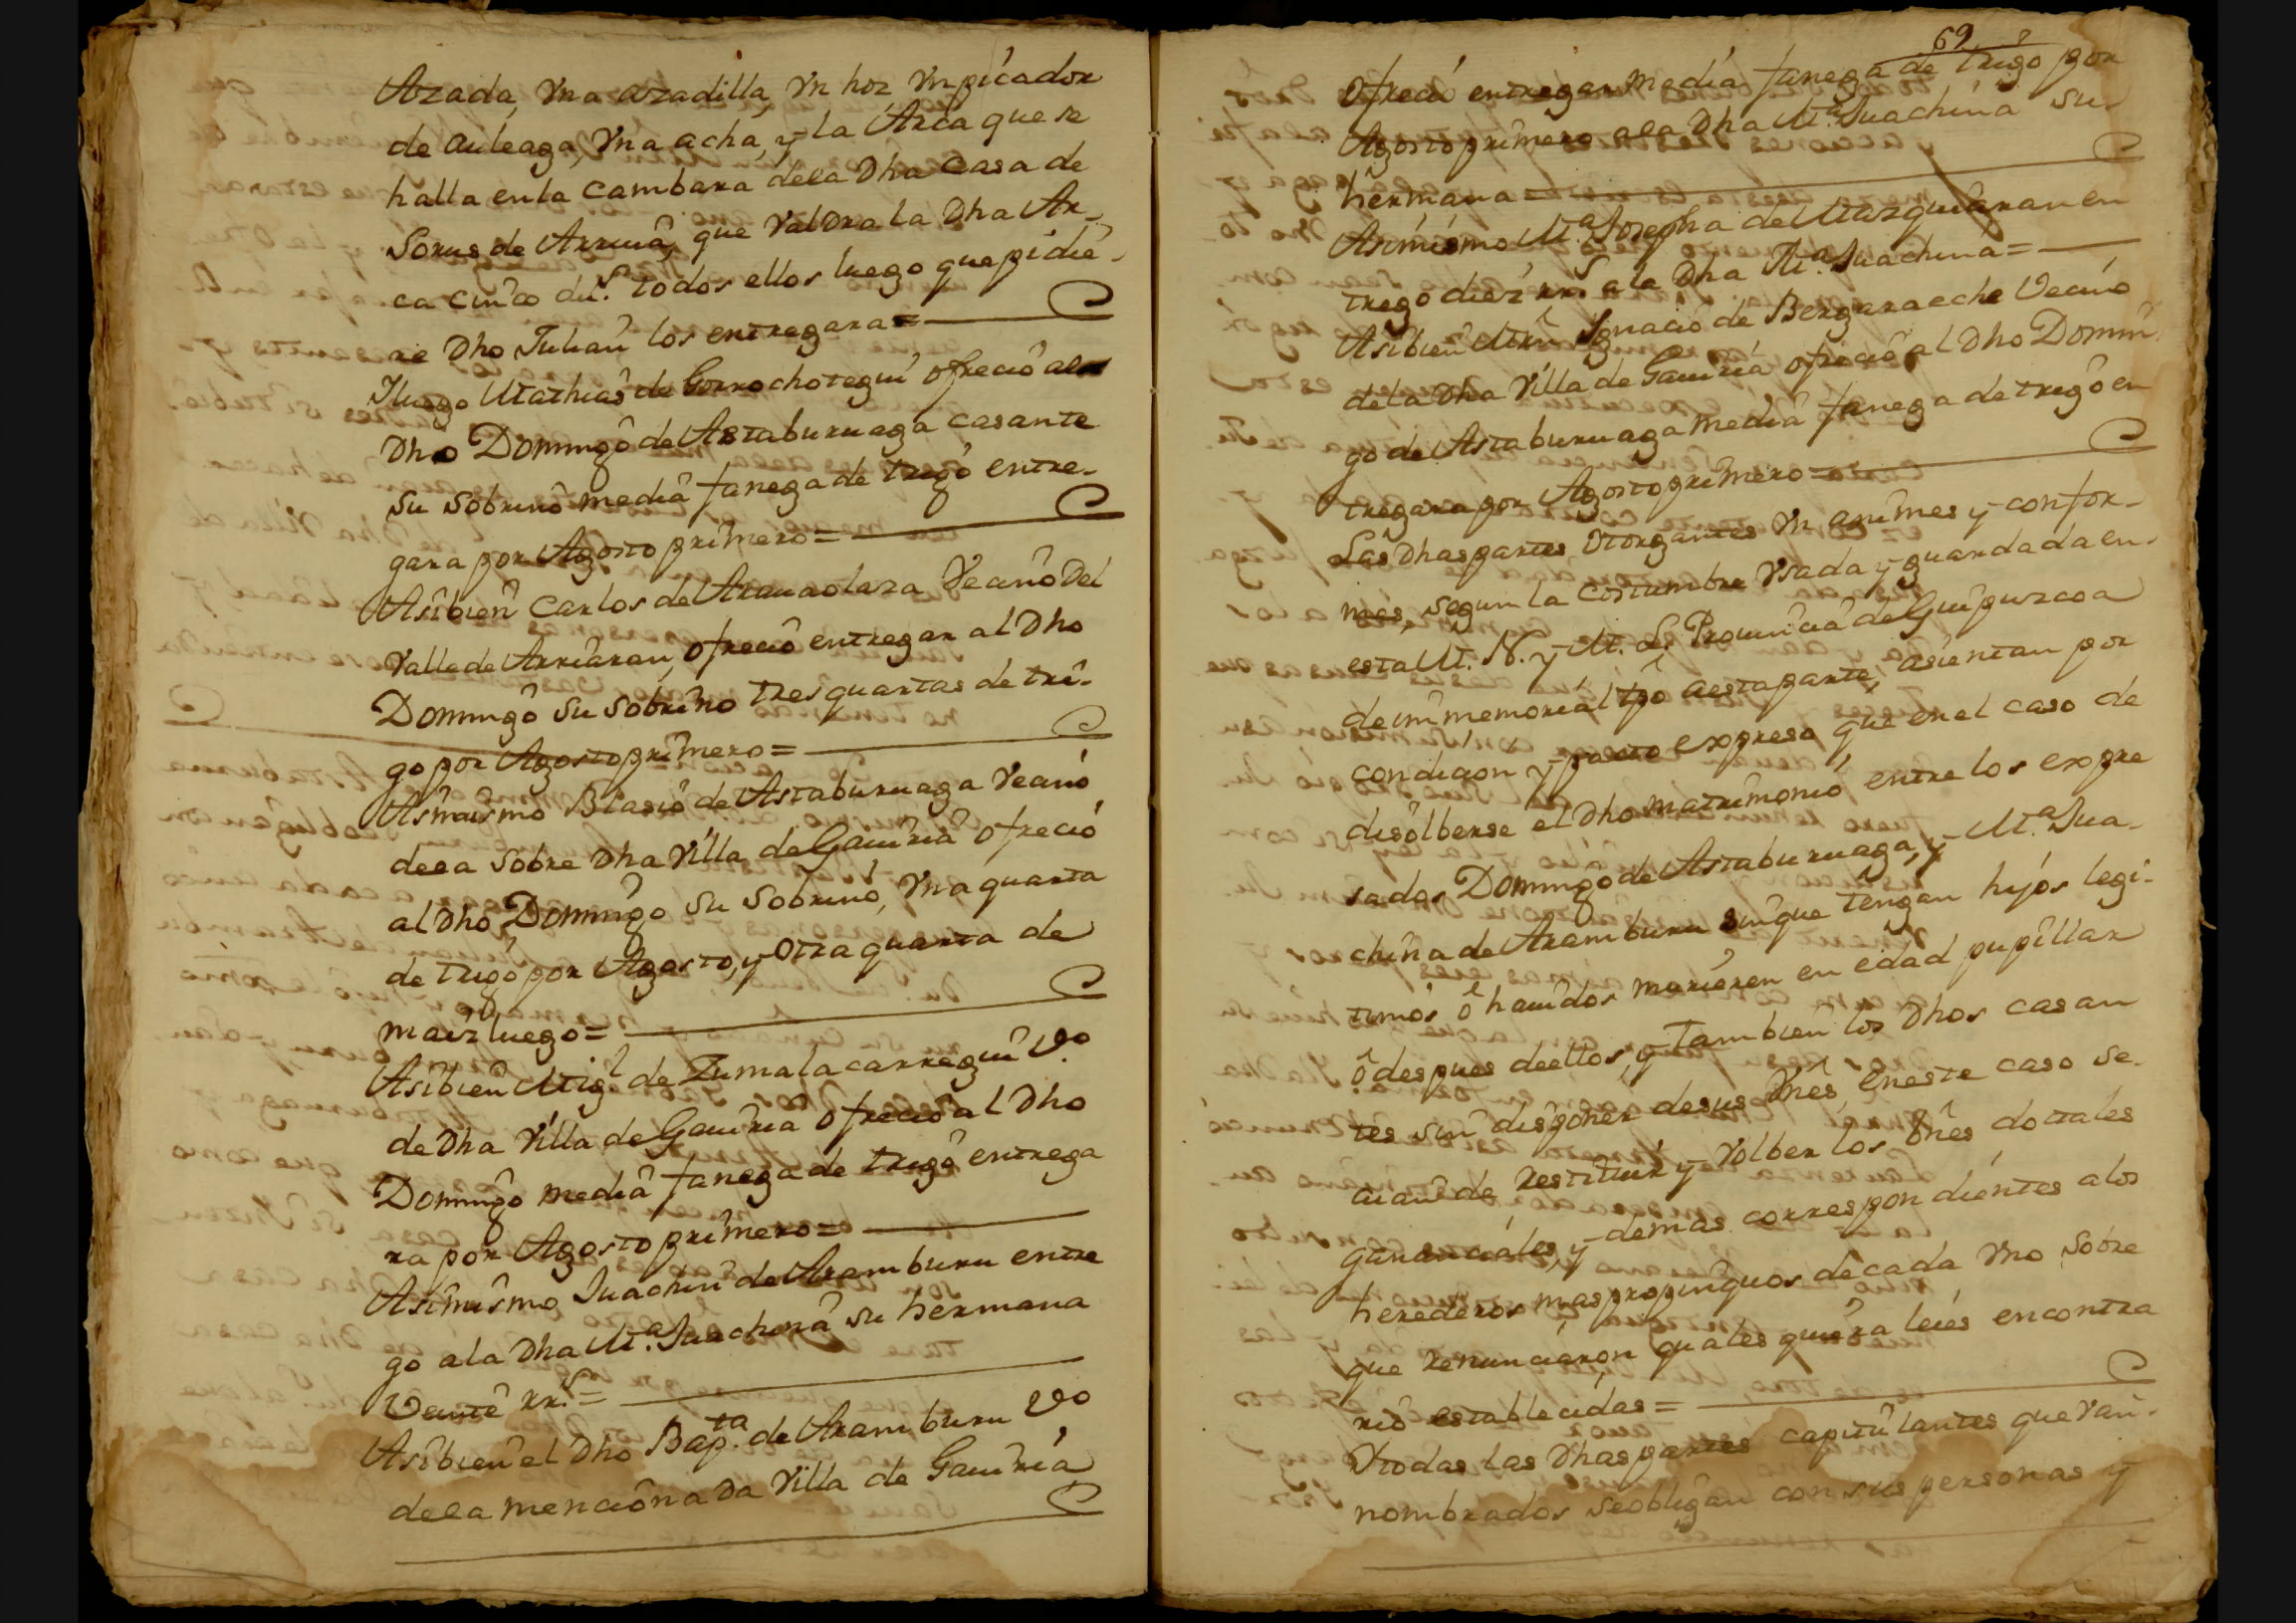 Azada, Vna azadilla, Vn hoz Vn picador
de auleaga, Vna acha, y la Arca que se
halla enla cambara dela Dha Casa de
Sorus de Arruã, que Valdra la Dha Ar-
ca cinco du.s todos ellos luego que pidie-
re Dho Julian los entregara=
Yluego Mathias de Gorrochotegui ofrecio al
Dho Domingo de Astaburuaga casante
su sobrino media fanega de trigo entre-
gara por Agosto primero=
Asibien Carlos de Aranaolaza Vecino Del
Valle de Arriaran, ofrecio entregar al Dho
Domingo su sobrino tres quartas de tri-
go por Agosto primero=
Asimismo Blasio de Astaburuaga Vecino
dela sobre Dha Villa de Gauiria ofrecio
al Dho Domingo su sobrino, Vna quarta
de trigo por Agosto, y Otra quarta de
maiz luego=
Asibien Migl de Zumalacarregui Vo
de Dha Villa de Gauiria ofrecio al Dho
Domingo media fanega de trigo entrega
ra por Agosto primero=
Asimismo Juachin de Aramburu entre
go ala Dha M.a Juachina su hermana
Veinte rr.s=
Asibien el Dho Bap.ta de Aramburu Vo
dela mencionada Villa de Gauiria
69
ofrecio entregar media fanega de trigo por
Agosto primero ala Dha M.a Juachina su
hermana=
Asimismo M.a Josepha de Mazquiaran en
trego diez rr.s ala Dha M.a Juachina=
Asibien Mrn Ignacio de Bergaraeche Vecino
dela Dha Villa de Gauiria ofrecio al Dho Domin
go de Astaburuaga media fanega de trigo en
tregara por Agosto primero=
Las Dhas partes Otorgantes Vn animes y confor-
mes, segun la costumbre Vsada y guardada en
esta M. N. y M. L. Prouincia de Guipuzcoa
de inmemorial tpo aesta parte, asientan por
condicion y pacto expreso, que en el caso de
disolberse el Dho matrimonio entre los expre
sados Domingo de Astaburuaga, y M.a Jua-
china de Aramburu sin que tengan hijos legi-
timos ô hauidos murieren en edad pupillar
ô despues de ellos, y Tambien los Dhos casan
tes sin disponer de sus Vnes, en este caso se
aian de restituir y Volber los Vnes dotales
gananciales, y demas correspondientes alos
herederos mas propinquos de cada Vno sobre
que renunciaron quales quiera leies en contra
rio establecidas=
Ytodas las Dhas partes capitulantes que Van
nombrados se obligan con sus personas y